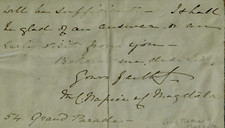 will be sufficient — I shall
be glad of an answer or an
early visit from you —
Believe me dear Sir
Yours faithf
Napier of Magdala
54 Grand Parade —